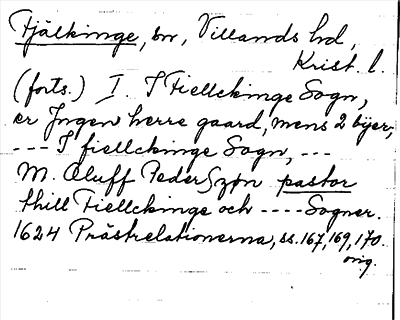 Fjälkinge, sn, Villands hd,
Krist. l.
(forts.) I. I Fiellckinge Sogn,
er Ingen herre gaard, mens 2 bijer,
--- I fiellckinge Sogn, ---
M. Oluff PederSzøn pastor
thill Fiellckinge och ---- Sogner.
1624 Prästrelationerna, ss. 167, 169, 170.
orig.